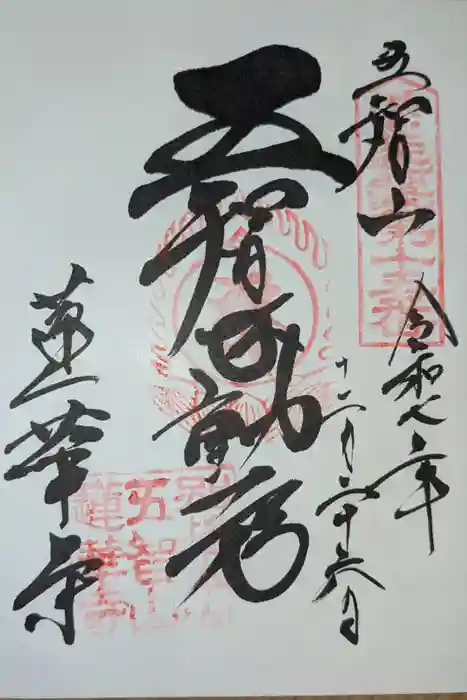 五智山
令和
十二月二十六日
五智不動尊
蓮華寺
五智山
蓮華寺